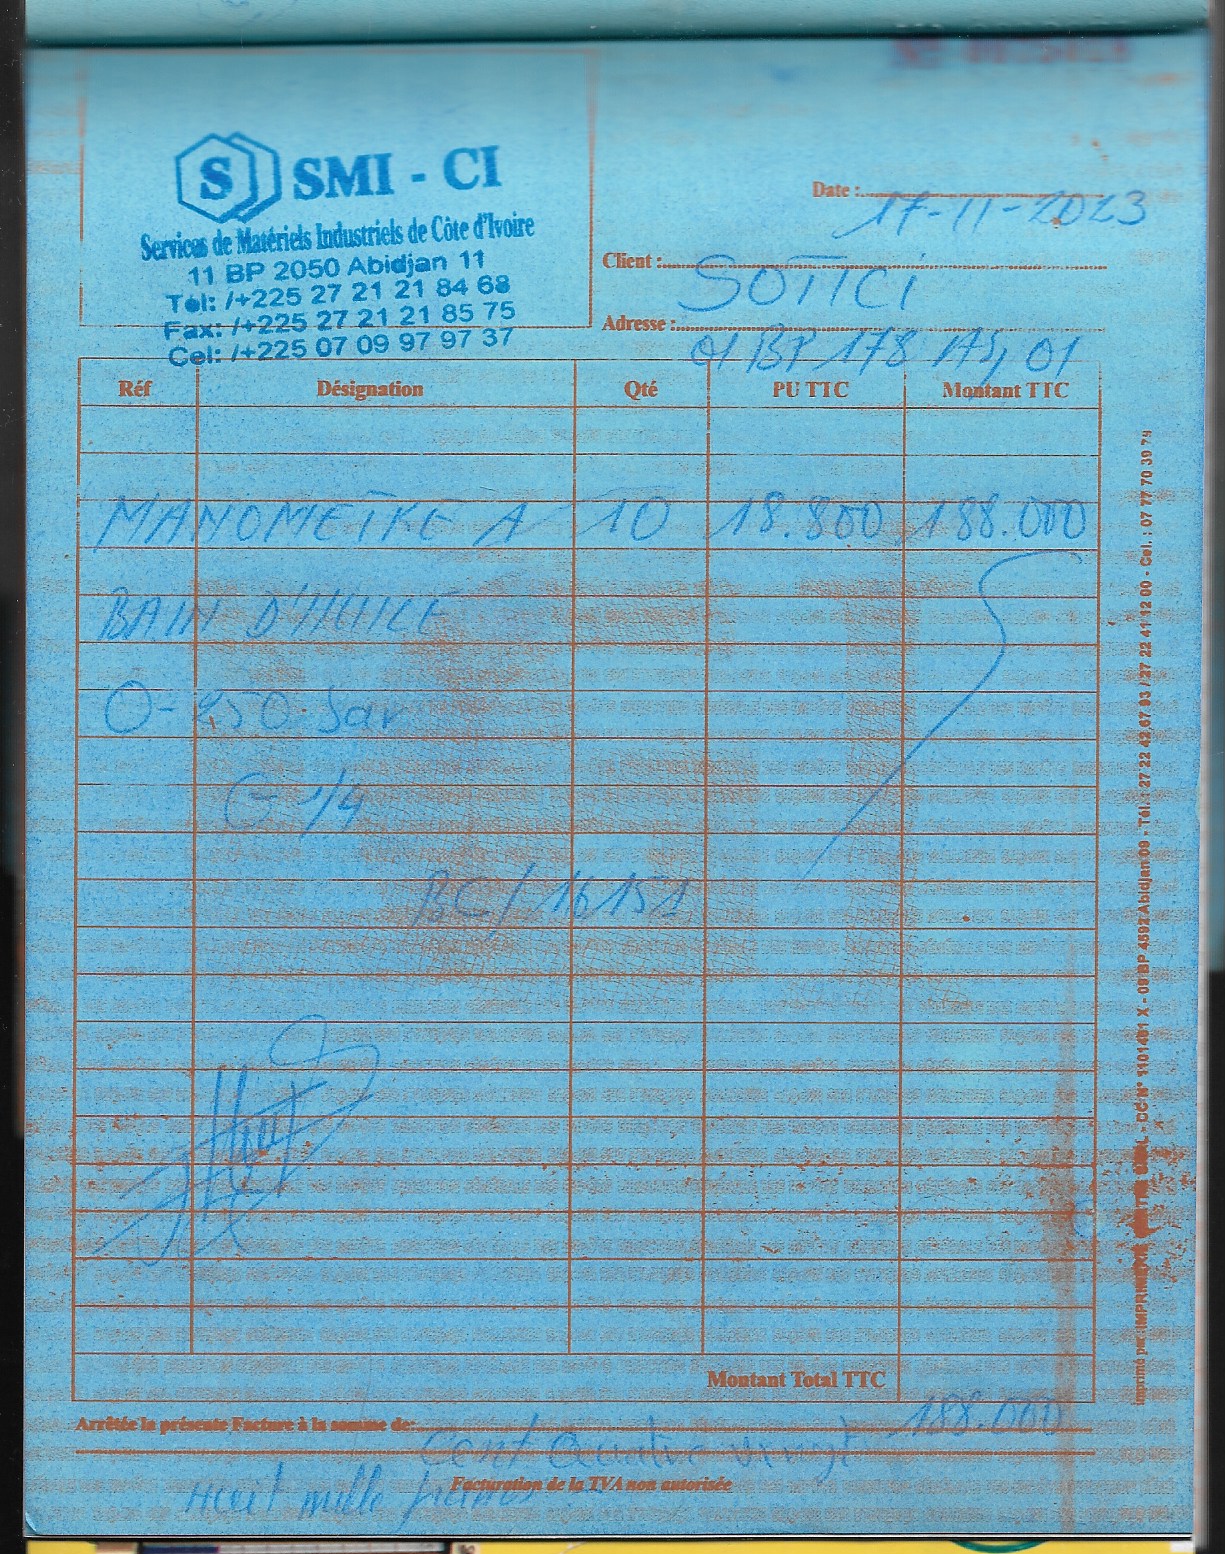 S SMI - CI
Services de Matériels Industriels de Côte d'Ivoire
11 BP 2050 Abidjan 11
Tél: /+225 27 21 21 84 68
Fax: /+225 27 21 21 85 75
Cel: /+225 07 09 97 97 37
Date : 17-11-2023
Client : SOTICI
Adresse : 01 BP 178 Abj 01
Réf Désignation Qté PU TTC Montant TTC
MANOMETRE A 10 18.800 188.000
BAIN D'HUILE
0-250 bar
G 1/4
BC/ 16151
Montant Total TTC 188.000
Arrêtée la présente Facture à la somme de: Cent Quatre vingt
Huit mille francs
Facturation de la TVA non autorisée